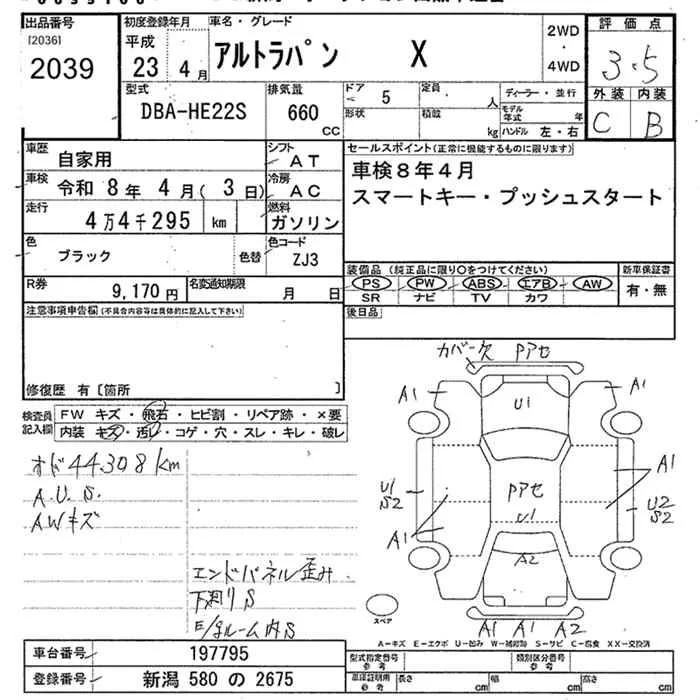 出品番号
[2036]
2039
初度登録年月
平成
23 4 月
車名・グレード
アルトラパン X
2WD
・
4WD
評価点
3.5
外装 内装
C B
型式
DBA-HE22S
排気量
660
CC
ドア
5
形状
定員
人
積載
kg
ディーラー・並行
モデル年式 年
ハンドル 左・右
車歴
自家用
シフト
AT
車検
令和 8 年 4 月( 3 日)
冷房
AC
走行
4万4千295 km
燃料
ガソリン
色
ブラック
色替
色コード
ZJ3
R券
9,170 円
名変通知期限
月 日
セールスポイント(正常に機能するものに限ります)
車検8年4月
スマートキー・プッシュスタート
装備品 (純正品に限り○をつけてください)
PS PW ABS エアB AW
SR ナビ TV カワ
新車保証書
有・無
後日品
注意事項申告欄(不具合内容等は具体的に記入して下さい)
修復歴 有〔箇所 〕
検査員記入欄
FW キズ・飛石・ヒビ割・リペア跡・×要
内装 キズ・汚レ・コゲ・穴・スレ・キレ・破レ
オド44.308km
A.U.S.
AWキズ
エンドパネル歪み
下廻りS
E/gルーム内S
カバー欠 Pアセ
A1
U1
A1
A1
U1
S2
Pアセ
U1
U2
S2
A1
A2
A1 A1 A2
スペア
A-キズ E-エクボ U-凹み W-補修跡 S-サビ C-腐食 XX-交換済
車台番号
197795
登録番号
新潟 580 の 2675
型式指定番号
参考
類別区分番号
参考
車庫証明用
参考
長さ cm
幅 cm
高さ cm